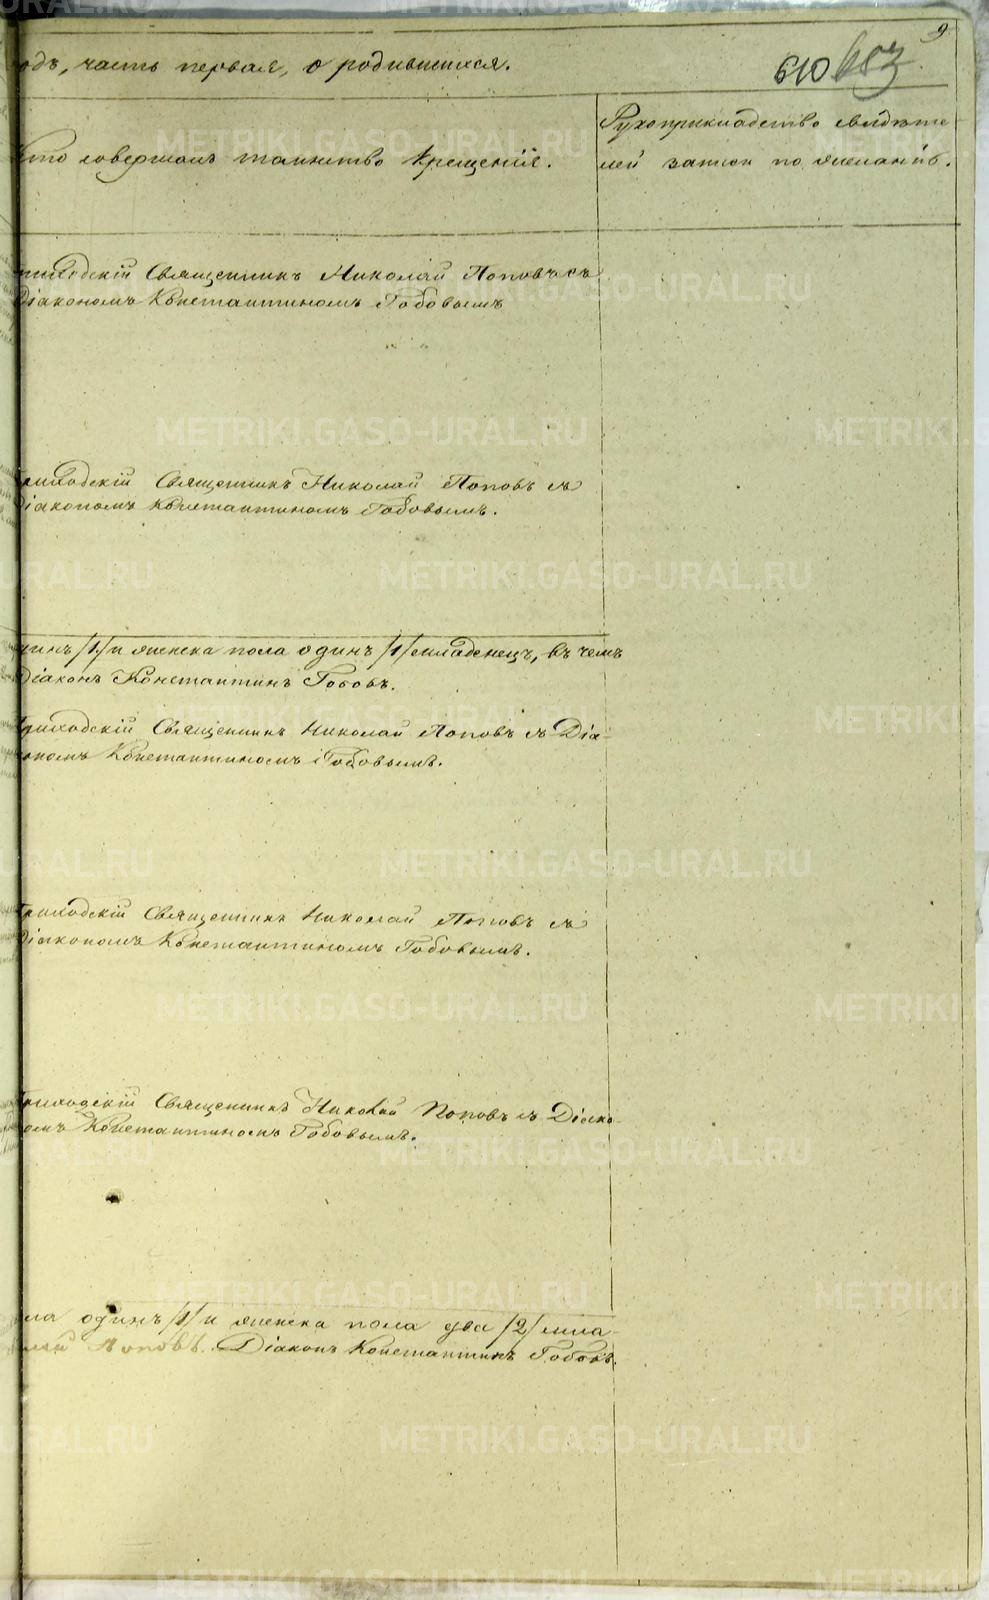 9
одъ, часть первая, о родившихся.
610 653
Кто совершалъ таинство крещенія.
Рукоприкладство свидѣте-
лей записи по желанію.
Приходскій Священникъ Николай Поповъ съ
Діакономъ Константиномъ Гобовымъ
Приходскій Священникъ Николай Поповъ съ
Діакономъ Константиномъ Гобовымъ.
динъ /1/ и женска пола одинъ /1/ младенецъ, въ чемъ
Діаконъ Константинъ Гобовъ.
Приходскій Священникъ Николай Поповъ съ Діа-
кономъ Константиномъ Гобовымъ.
Приходскій Священникъ Николай Поповъ съ
Діакономъ Константиномъ Гобовымъ.
Приходскій Священникъ Николай Поповъ съ Діако-
номъ Константиномъ Гобовымъ.
ла одинъ /1/ и женска пола два /2/ мла-
лай Поповъ. Діаконъ Константинъ Гобовъ.
METRIKI.GASO-URAL.RU